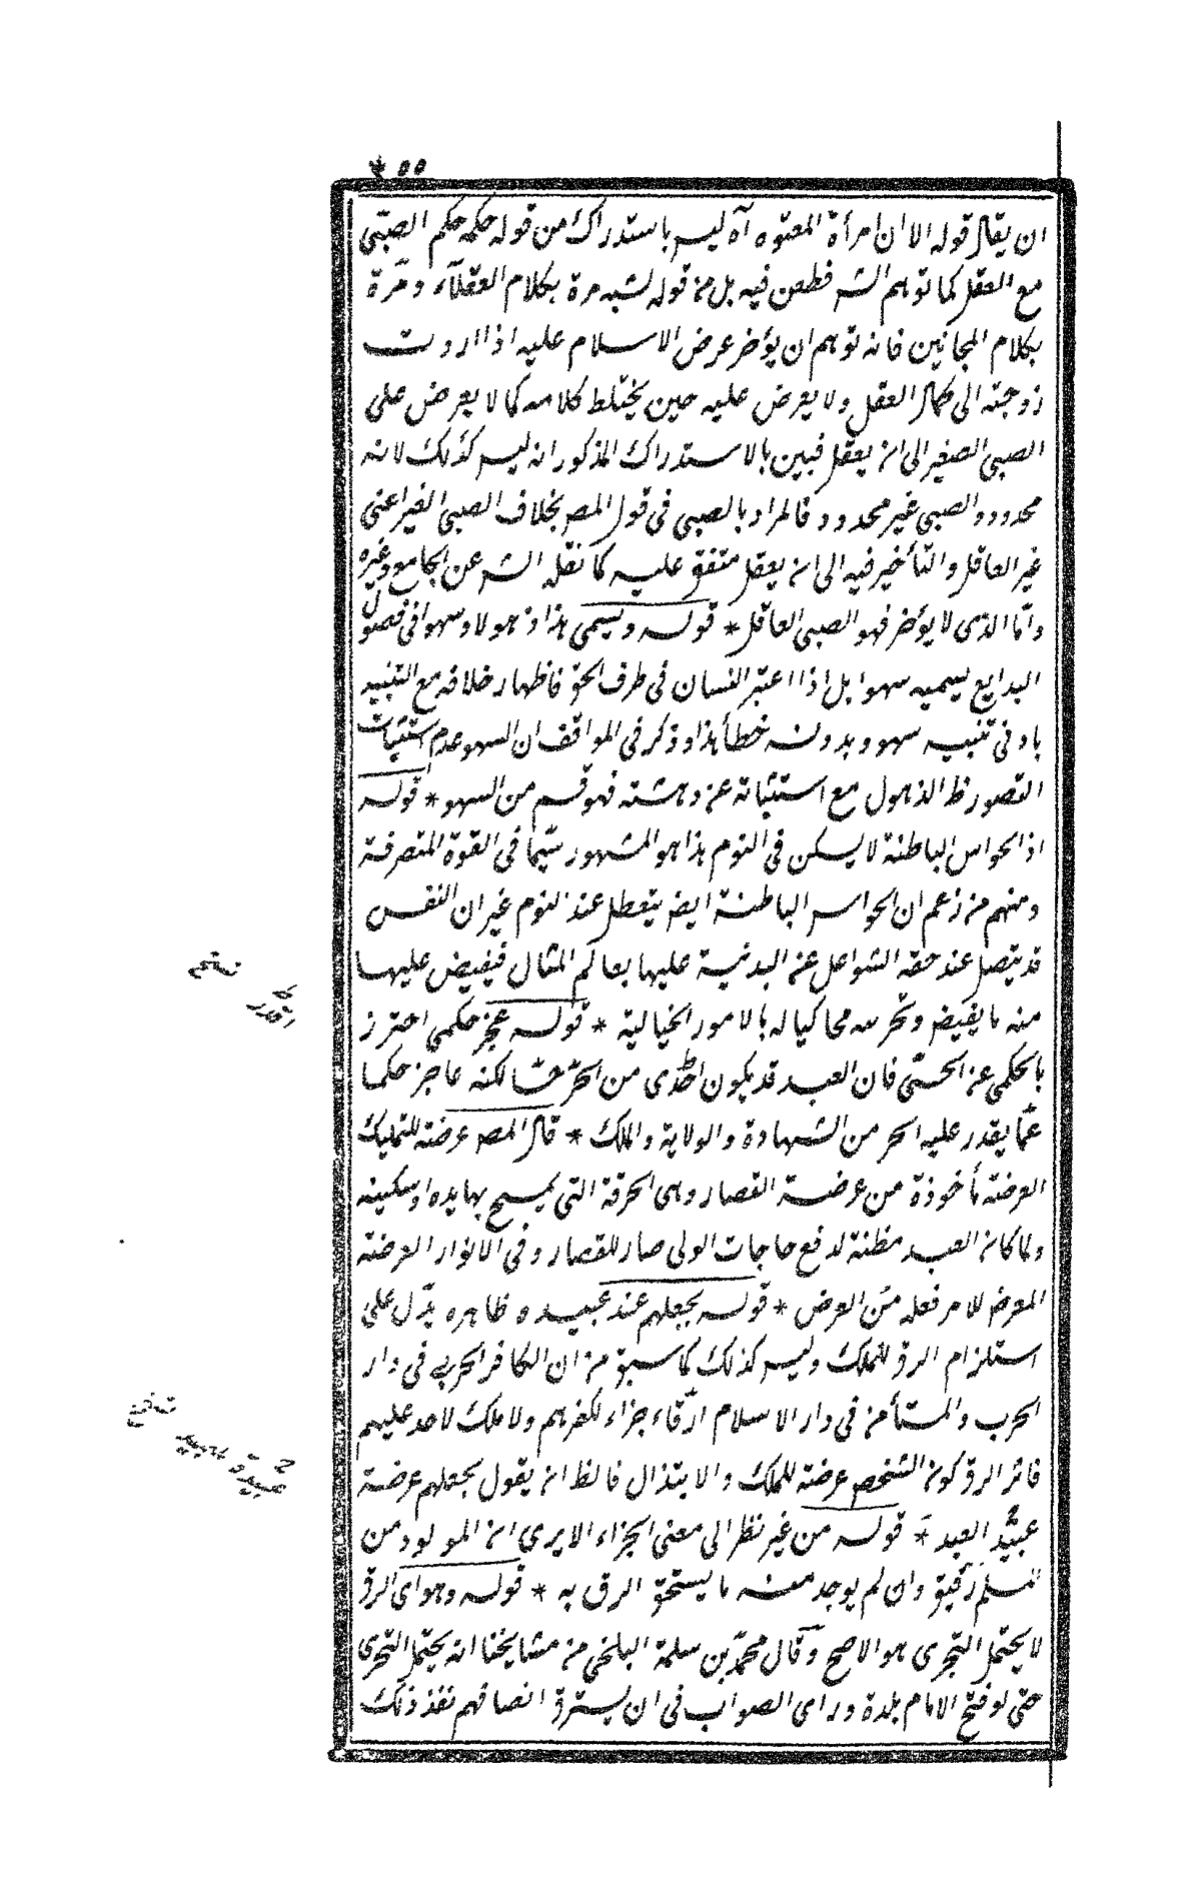 ان يقال قوله الا ان امرأة المعتوه آه ليس باستدراك من قوله حكمه حكم الصبى
مع العقل كما توهم الشه فطعن فيه بل من قوله لشبه مرة بكلام العقلاء ومرة
بكلام المجانين فانه توهم ان يؤخر عرض الاسلام عليه اذا اروت
زوجته الى كمال العقل ولا يعرض عليه حين يختلط كلامه كما لا يعرض على
الصبى الصغير الى ان يعقل فبين بالاستدراك المذكور انه ليس كذلك لانه
محدود والصبى غير محدود فالمراد بالصبى فى قول المصه بخلاف الصبى الغير اعنى
غير العاقل والتأخير فيه الى ان يعقل متفق عليه كما نقله الشه عن الجامع وغيره
واما الذى لا يؤخر فهو الصبى العاقل * قوله ويسمى هذا ذهولا وسهوا فى فصول
البدايع يسميه سهوا بل اذا اعتبر النسان فى طرف الحق فاظهار خلافه مع التنبيه
باوفى تنبيه سهو وبدونه خطأ هذا وذكر فى المواقف ان السهو عدم استثبات
التصور نظ الذهول مع استثباته عن دهشته فهو قسم من السهو * قوله
اذ الحواس الباطنة لا يسكن فى النوم هذا هو المشهور سيما فى القوة المتصرفة
ومنهم من زعم ان الحواس الباطنة ايض يتعطل عند النوم غير ان النفس
قد يتصل عند خفة الشواعل عن البدنية عليها بعالم المثال فيفيض عليها
منه ما يفيض وتخرسه محاكيا له بالامور الخيالية * قوله عجز حكمى احترز
بالحكمى عن الحسى فان العبد قد يكون اقدى من الحر حسا لكنه عاجز حكما
عما يقدر عليه الحر من الشهادة والولاية والملك * قال المصه عرضة للتمليك
العرضة مأخوذة من عرضة القصار وهى الحرقة التى يمسح بها يده او سكينه
ولما كان العبد مظنة لدفع حاجات الولى صار للقصار وفى الانوار العرضة
المعرض للامر فعله من العرض * قوله بجعلهم عند عبيده ظاهره يدل على
استلزام الرق للملك وليس كذلك كما سبق من ان الكافر الحربى فى دار
الحرب والمستأمن فى دار الاسلام ارقاء جزاء لكفرهم ولا ملك لاحد عليهم
فاثر الرق كون الشخص عرضة للملك والابتذال فالظ ان يقول بجعلهم عرضة
عبيد العبد * قوله من غير نظر الى معنى الجزاء الا يرى ان المولود من
المسلم رقيق وان لم يوجد منه ما يستحق الرق به * قوله وهو اى الرق
لا يحتمل التجزى هو الاصح وقال محمد بن سلمة البلخى من مشايخنا انه يحتمل التجزى
حتى لو فتح الامام بلدة وراى الصواب فى ان يسترق انصافهم نفذ ذلك